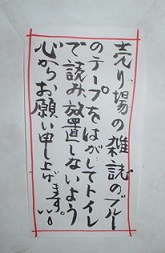 売り場の雑誌のブルー
のテープをはがしてトイレ
で読み放置しないよう
心からお願い申し上げます。!!